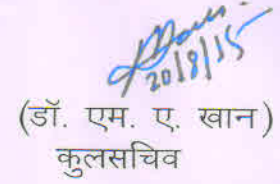 20/8/15
(डॉ. एम. ए. खान)
कुलसचिव